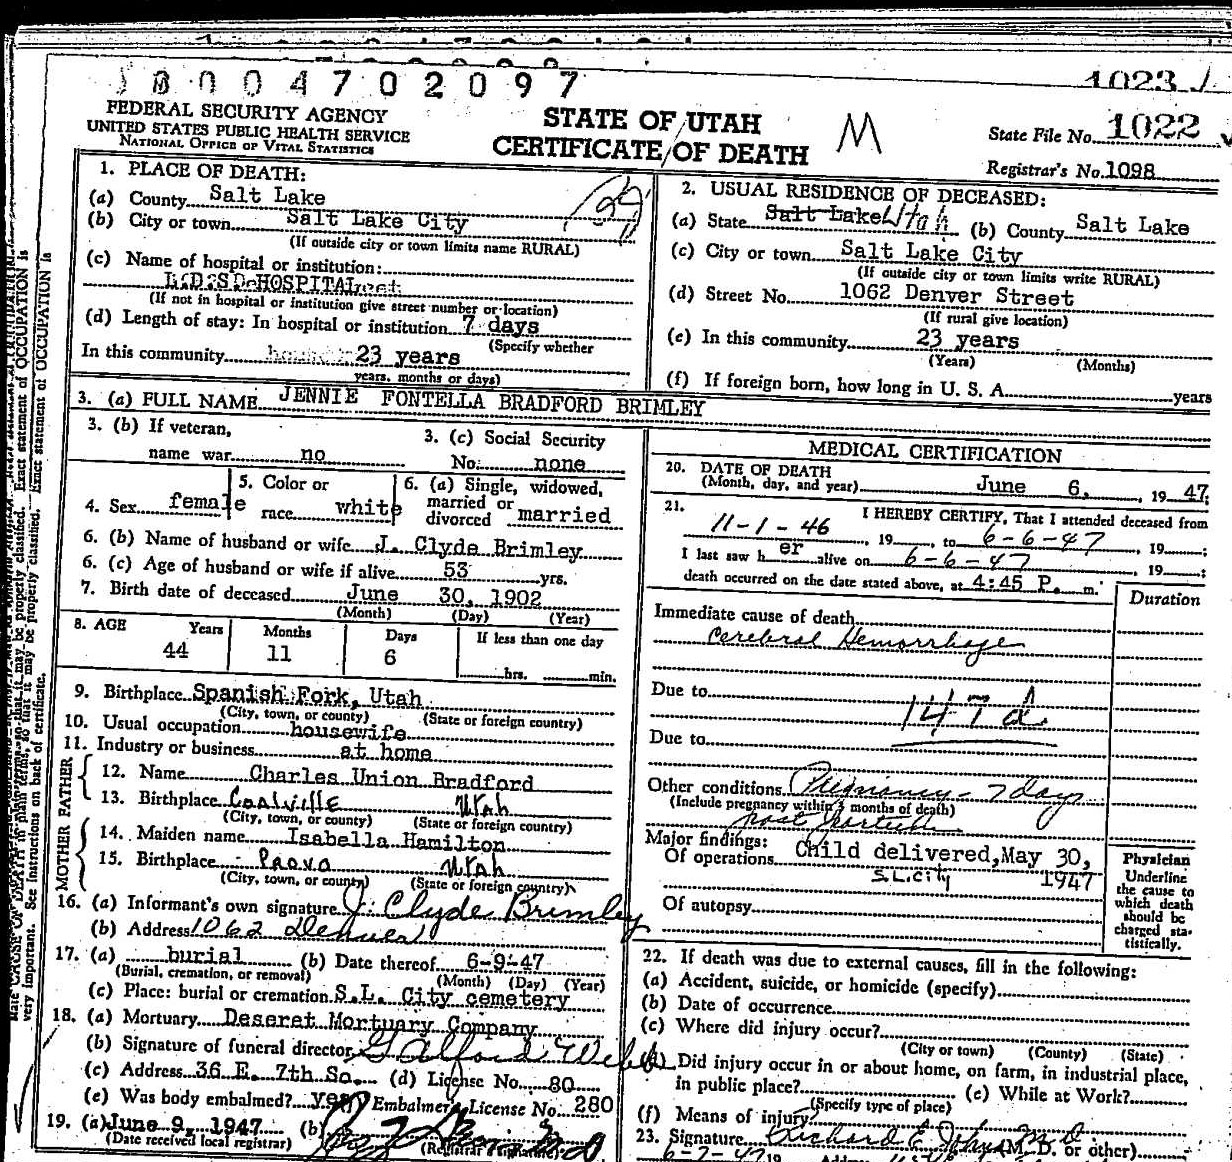 1023
18004702097
FEDERAL SECURITY AGENCY
UNITED STATES PUBLIC HEALTH SERVICE
NATIONAL OFFICE OF VITAL STATISTICS
STATE OF UTAH
CERTIFICATE OF DEATH
M
State File No. 1022
Registrar's No. 1098
1. PLACE OF DEATH:
(a) County Salt Lake
(b) City or town Salt Lake City
(If outside city or town limits name RURAL)
(c) Name of hospital or institution:
HOSPITAL
(If not in hospital or institution give street number or location)
(d) Length of stay: In hospital or institution 7 days
(Specify whether
In this community 23 years
years, months or days)
2. USUAL RESIDENCE OF DECEASED:
(a) State Salt Lake Utah (b) County Salt Lake
(c) City or town Salt Lake City
(If outside city or town limits write RURAL)
(d) Street No. 1062 Denver Street
(If rural give location)
(e) In this community 23 years
(Years) (Months)
(f) If foreign born, how long in U. S. A. years
3. (a) FULL NAME JENNIE FONTELLA BRADFORD BRIMLEY
3. (b) If veteran,
name war no
3. (c) Social Security
No. none
4. Sex female
5. Color or
race white
6. (a) Single, widowed,
married or
divorced married
6. (b) Name of husband or wife J. Clyde Brimley
6. (c) Age of husband or wife if alive 53 yrs.
7. Birth date of deceased June 30, 1902
(Month) (Day) (Year)
8. AGE Years Months Days If less than one day
44 11 6 hrs. min.
9. Birthplace Spanish Fork, Utah
(City, town, or county) (State or foreign country)
10. Usual occupation housewife
11. Industry or business at home
FATHER
12. Name Charles Union Bradford
13. Birthplace Coalville Utah
(City, town, or county) (State or foreign country)
MOTHER
14. Maiden name Isabella Hamilton
15. Birthplace Provo Utah
(City, town, or county) (State or foreign country)
16. (a) Informant's own signature J. Clyde Brimley
(b) Address 1062 Denver
17. (a) burial (b) Date thereof 6-9-47
(Burial, cremation, or removal) (Month) (Day) (Year)
(c) Place: burial or cremation S.L. City cemetery
18. (a) Mortuary Deseret Mortuary Company
(b) Signature of funeral director
(c) Address 36 E. 7th So. (d) License No. 80
(e) Was body embalmed? yes Embalmers License No. 280
19. (a) June 9, 1947 (b)
(Date received local registrar) (Registrar
MEDICAL CERTIFICATION
20. DATE OF DEATH
(Month, day, and year) June 6, 1947
21. I HEREBY CERTIFY, That I attended deceased from
11-1-46, 19, to 6-6-47, 19;
I last saw her alive on 6-6-47, 19;
death occurred on the date stated above, at 4:45 P. m.
Duration
Immediate cause of death
Cerebral Hemorrhage
Due to
147 d
Due to
Other conditions Pregnancy - 7 days
(Include pregnancy within 3 months of death)
post partum
Major findings:
Of operations Child delivered, May 30,
S.L.City 1947
Of autopsy
Physician
Underline
the cause to
which death
should be
charged sta-
tistically.
22. If death was due to external causes, fill in the following:
(a) Accident, suicide, or homicide (specify)
(b) Date of occurrence
(c) Where did injury occur?
(City or town) (County) (State)
(d) Did injury occur in or about home, on farm, in industrial place,
in public place? (e) While at Work?
(Specify type of place)
(f) Means of injury
23. Signature Richard E. (M. D. or other)
6-7-47 19